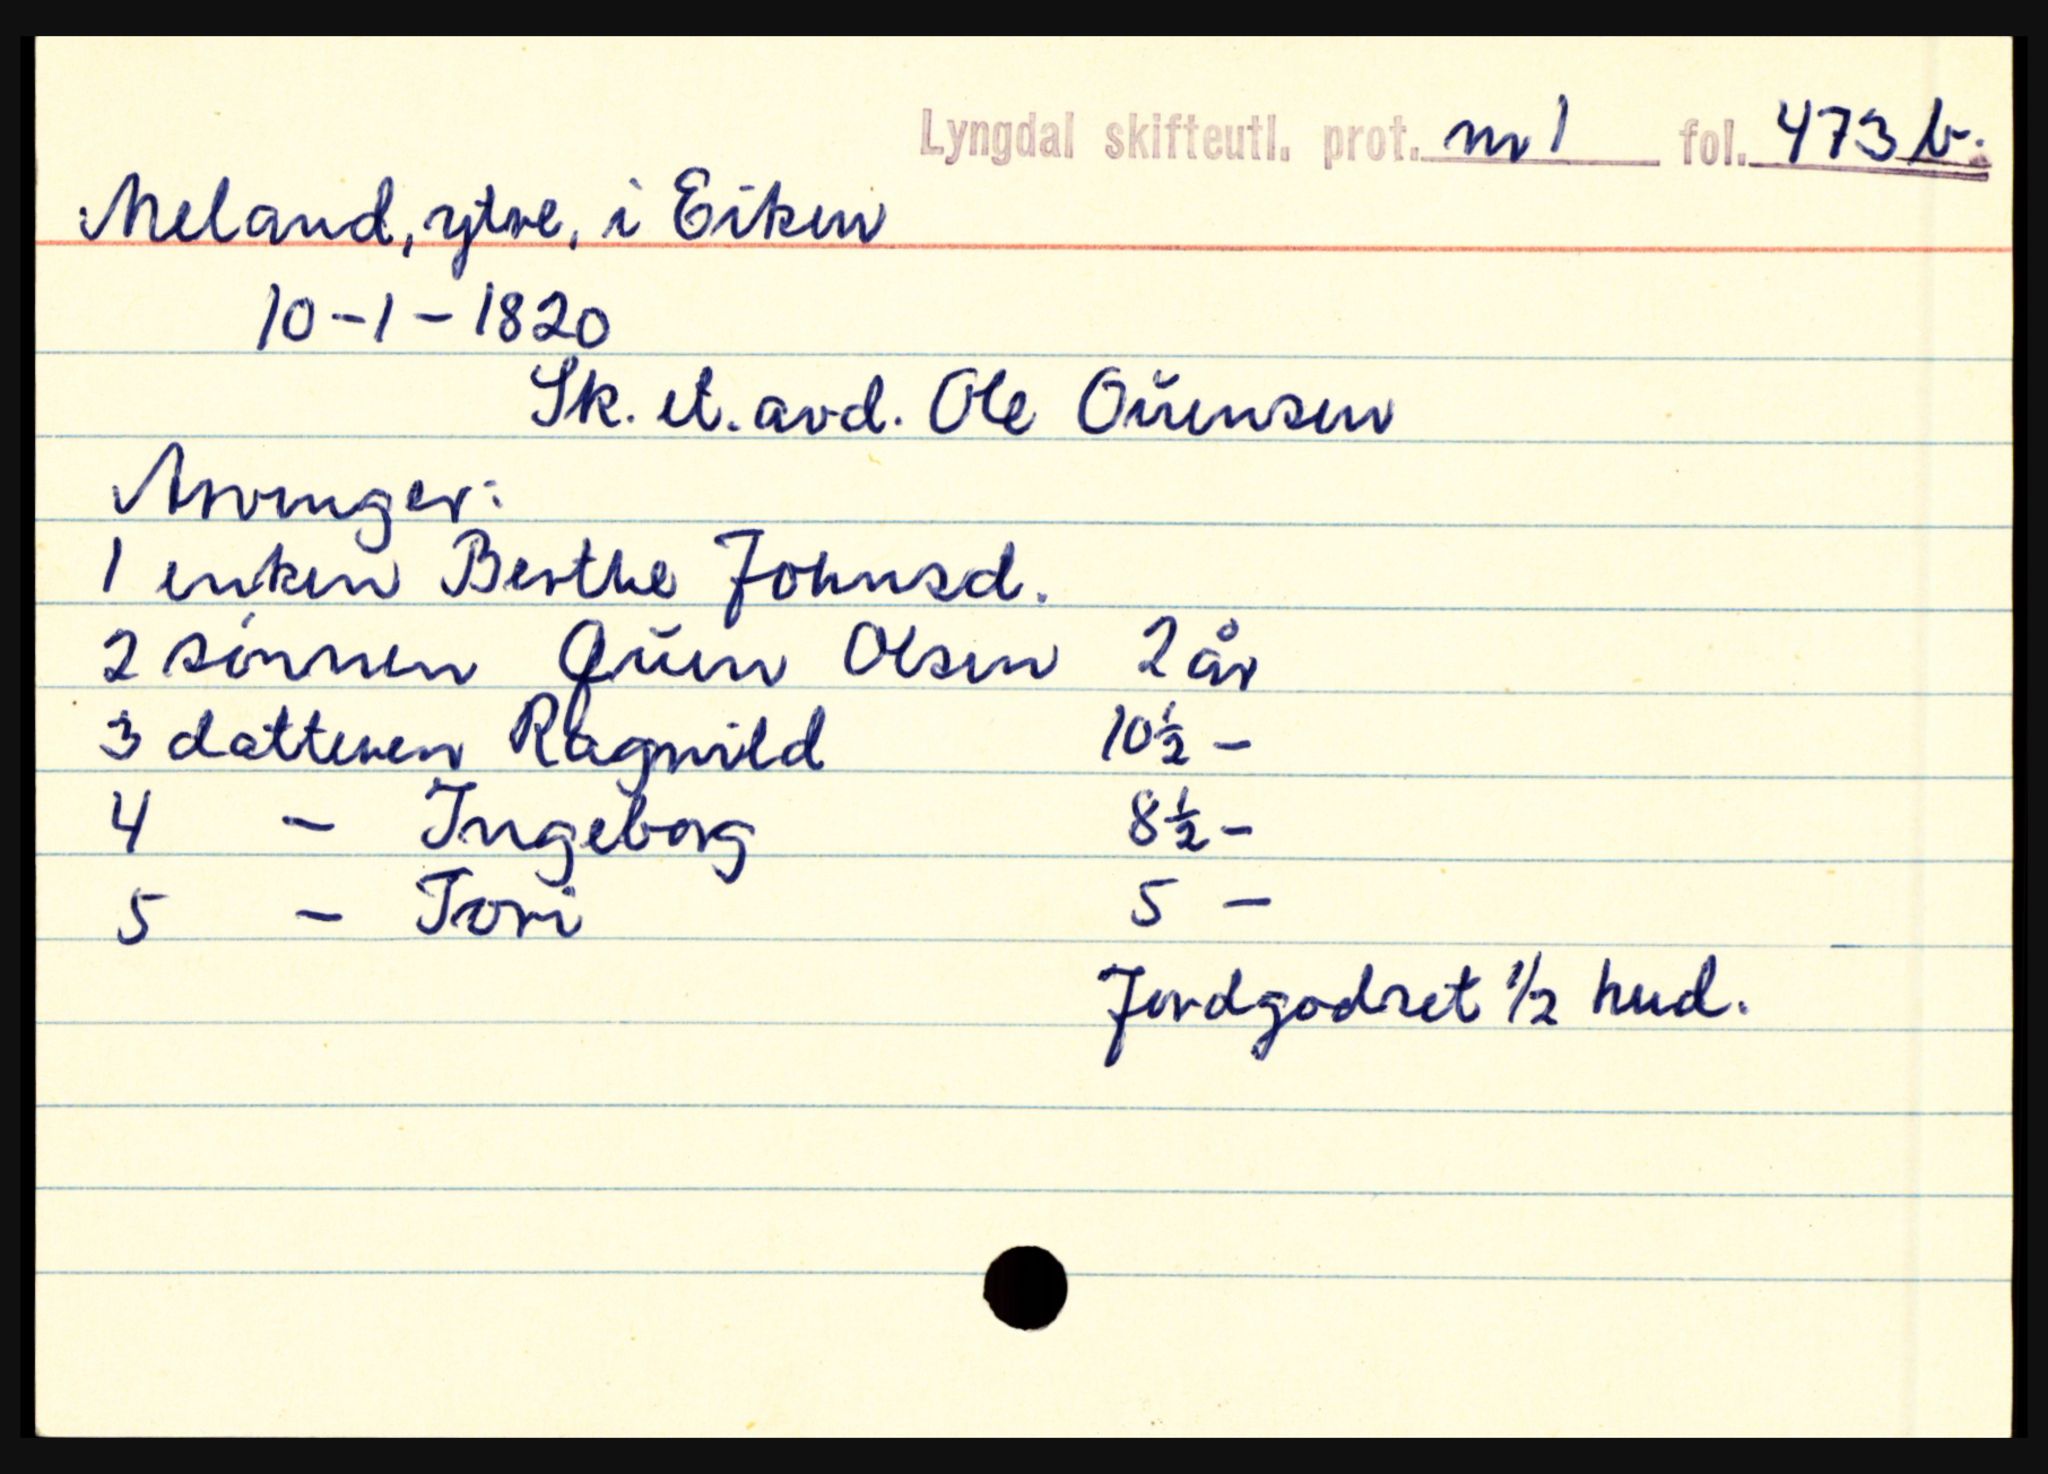 Lyngdal skifteutl. prot. nr 1 fol. 473 b.
Meland, ytre, i Eiken
10-1-1820
Sk. et. avd. Ole Oŭensen
Arvinger:
1 enken Berthe Johnsd.
2 sønnen Oŭen Olsen 2 år
3 datteren Ragnild 10½ -
4 - Ingeborg 8½ -
5 - Tori 5 -
Jordgodset 1/2 hud.